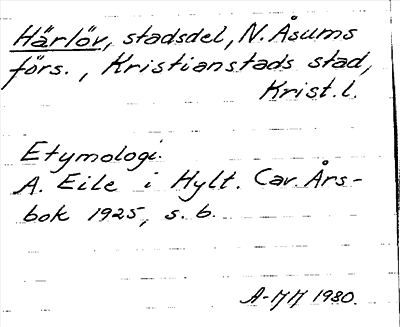 Härlöv, stadsdel, N. Åsums
förs., Kristianstads stad,
Krist. l.
Etymologi.
A. Eile i Hylt. Cav. Års-
bok 1925, s. 6.
A-MM 1980.